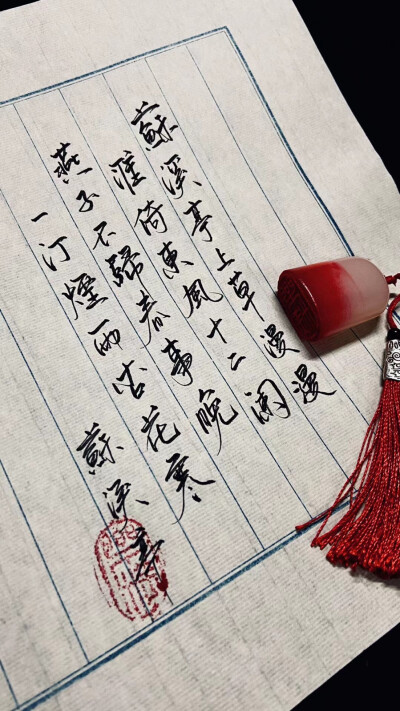 蘇溪亭上草漫漫
誰倚東風十二闌
燕子不歸春事晚
一汀煙雨杏花寒
蘇溪亭